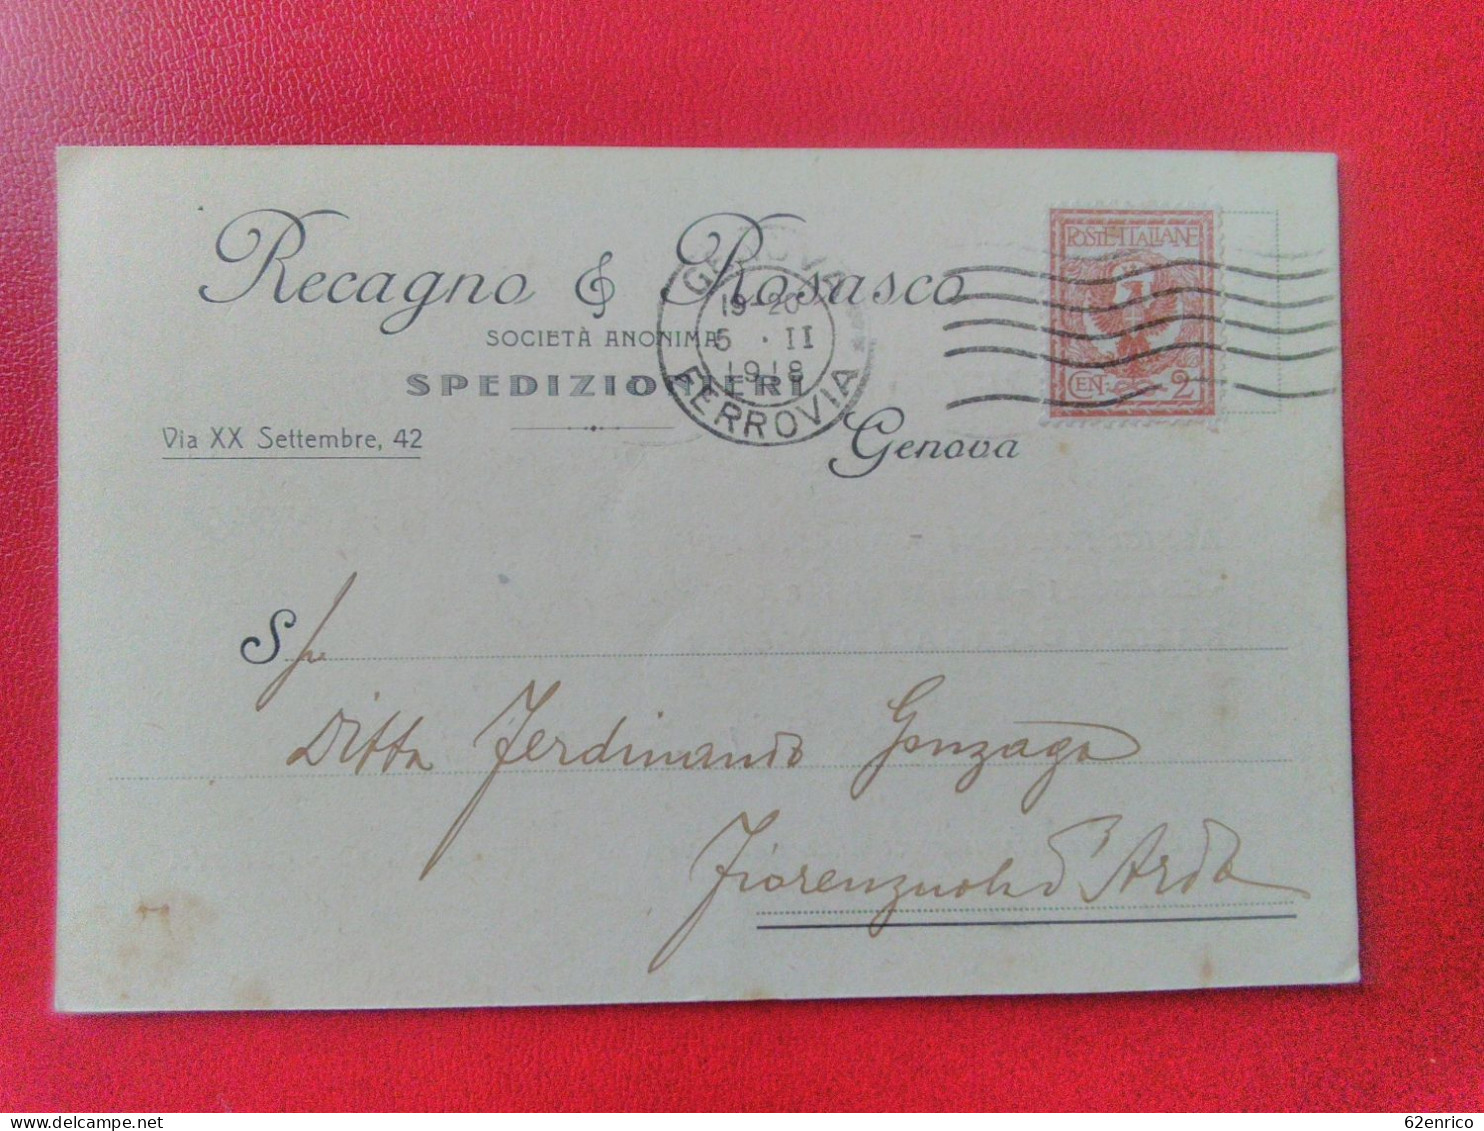 Recagno & Rosasco
SOCIETÀ ANONIMA
SPEDIZIONIERI
Via XX Settembre, 42
Genova
GENOVA
19-20
5 · II
1918
FERROVIA
POSTE ITALIANE
CEN. 2
Spe
Ditta Ferdinando Gonzaga
Fiorenzuola d'Arda
62enrico